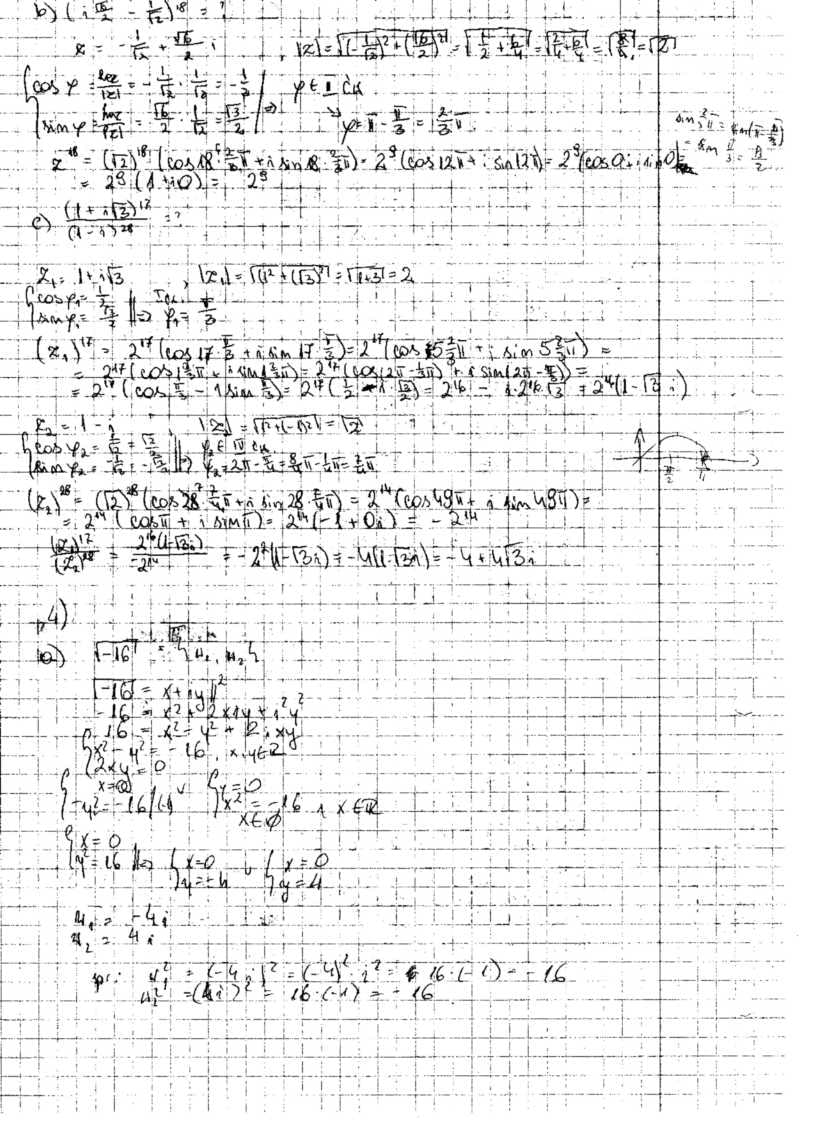 b) (i √6/2 - 1/√2)^18 = ?
z = -1/√2 + √6/2 i , |z| = √((-1/√2)² + (√6/2)²) = √(1/2 + 6/4) = √(2/4 + 6/4) = √(8/4) = √2
{cos φ = Re z/|z| = -1/√2 · 1/√2 = -1/2
φ ∈ II ćw
{sin φ = Im z/|z| = √6/2 · 1/√2 = √3/2 ⇒ φ = π - π/3 = 2/3 π
sin 2/3 π = sin(π - π/3)
= sin π/3 = √3/2
z^18 = (√2)^18 (cos 18·2/3 π + i sin 18·2/3 π) = 2^9 (cos 12π + i sin 12π) = 2^9 (cos 0 + i sin 0) =
= 2^9 (1 + i0) = 2^9
c) (1 + i√3)^17 / (1 - i)^28 = ?
z₁ = 1 + i√3 , |z₁| = √(1² + (√3)²) = √(1+3) = 2
{cos φ₁ = 1/2
{sin φ₁ = √3/2 ⇒ φ₁ = π/3
(z₁)^17 = 2^17 (cos 17·π/3 + i sin 17·π/3) = 2^17 (cos 5 2/3 π + i sin 5 2/3 π) =
= 2^17 (cos 1 2/3 π + i sin 1 2/3 π) = 2^17 (cos(2π - 1/3 π) + i sin(2π - π/3)) =
= 2^17 (cos π/3 - i sin π/3) = 2^17 (1/2 - i √3/2) = 2^16 - i·2^16·√3 = 2^16 (1 - √3 i)
z₂ = 1 - i , |z₂| = √(1² + (-1)²) = √2
{cos φ₂ = 1/√2 = √2/2 φ₂ ∈ IV ćw
{sin φ₂ = -1/√2 = -√2/2 ⇒ φ₂ = 2π - π/4 = 8/4 π - 1/4 π = 7/4 π
π/2 π
(z₂)^28 = (√2)^28 (cos 28·7/4 π + i sin 28·7/4 π) = 2^14 (cos 49π + i sin 49π) =
= 2^14 (cos π + i sin π) = 2^14 (-1 + 0i) = -2^14
(z₁)^17 / (z₂)^28 = 2^16 (1-√3 i) / -2^14 = -2² (1-√3 i) = -4(1-√3 i) = -4 + 4√3 i
4)
a) √-16 = {u₁, u₂}
√-16 = x + iy ||²
-16 = x² + 2xiy + i²y²
-16 = x² - y² + 2ixy
{x² - y² = -16 , x, y ∈ R
{2xy = 0
{x = 0 ∨ {y = 0
{-y² = -16 /(-1) {x² = -16 ∧ x ∈ R
x ∈ ∅
{x = 0
{y² = 16 ⇒ {x = 0 ∨ {x = 0
{y = -4 {y = 4
u₁ = -4i
u₂ = 4i
spr: u₁² = (-4i)² = (-4)²·i² = 16·(-1) = -16
u₂² = (4i)² = 16·(-1) = -16